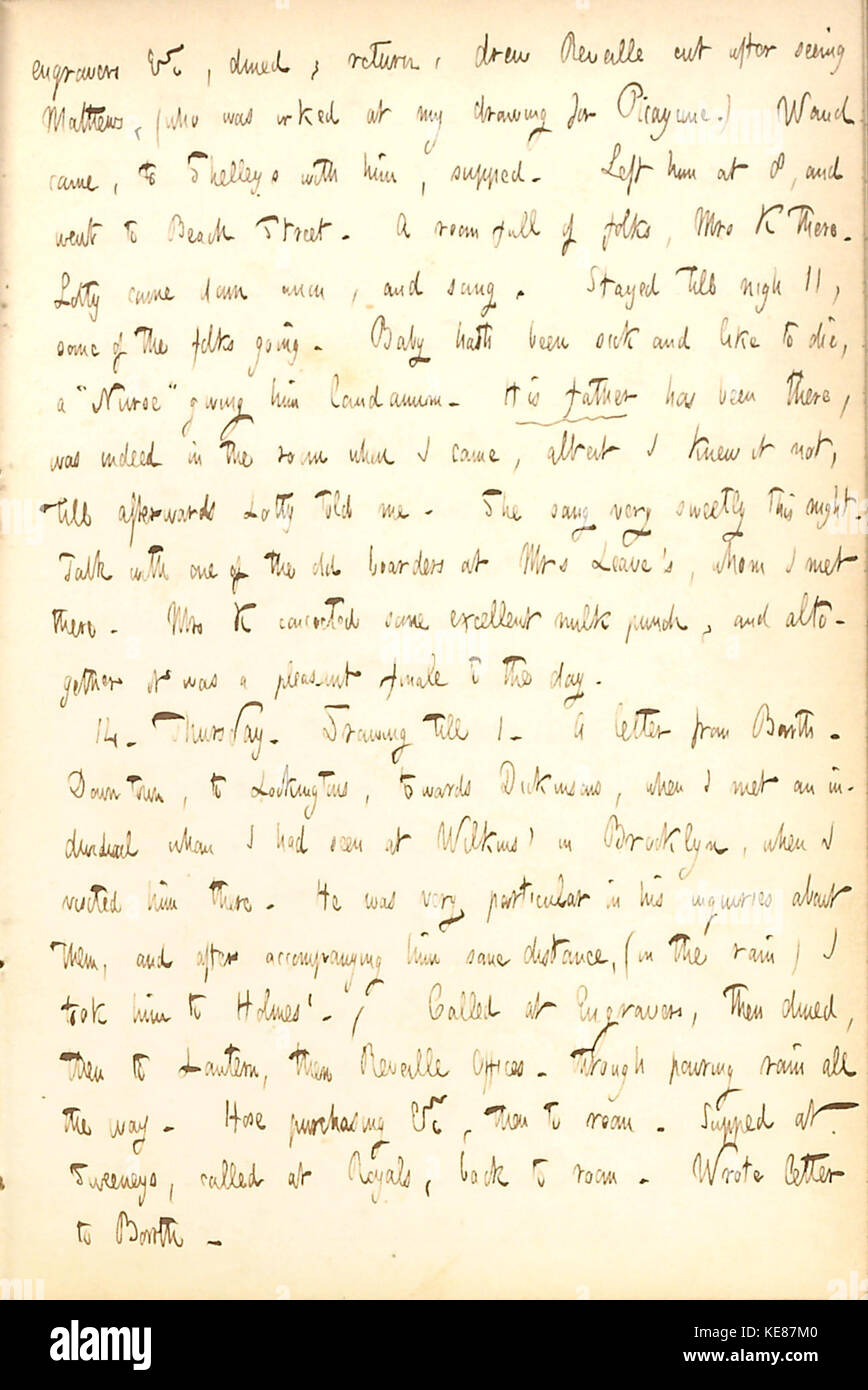 engravers &c, dined, return, drew Reveille cut after seeing
Mathews, (who was irked at my drawing for Picayune.) Waud
came, to Shelleys with him, supped. Left him at 8, and
went to Beach Street. A room full of folks, Mrs K there.
Lotty came down anon, and sang. Stayed till nigh 11,
some of the folks going. Baby hath been sick and like to die,
a "Nurse" giving him laudanum. His father has been there,
was indeed in the room when I came, albeit I knew it not,
till afterwards Lotty told me. She sang very sweetly this night.
Talk with one of the old boarders at Mrs Leave's, whom I met
there. Mrs K concocted some excellent milk punch, and alto-
gether it was a pleasant finale to the day.
14. Thursday. Drawing till 1. A letter from Barth.
Down town, to Lockingtons, towards Dickinsons, when I met an in-
dividual whom I had seen at Wilkins' in Brooklyn, when I
visited him there. He was very particular in his inquiries about
them, and after accompanying him some distance, (in the rain) I
took him to Holmes'. Called at Engravers, then dined,
then to Lantern, then Reveille Offices. through pouring rain all
the way. Hose purchasing &c, then to room. Supped at
Sweeneys, called at Royals, back to room. Wrote letter
to Barth.
alamy
Image ID: KE87M0
www.alamy.com